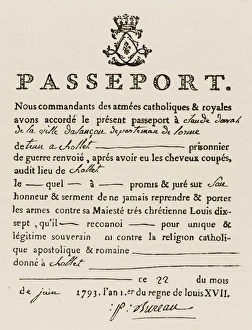 PASSEPORT.
Nous commandants des armées catholiques & royales
avons accordé le présent passeport à
de la ville
à Chollet prisonnier
de guerre renvoié, après avoir eu les cheveux coupés,
audit lieu de Chollet
le — quel — à — promis & juré sur Son
honneur & serment de ne jamais reprendre & porter
les armes contre sa Majesté très chrétienne Louis dix-
sept, qu'il — reconnoi — pour unique &
légitime souverain ni contre la religion catholi-
que apostolique & romaine
donné à Chollet
ce 22 du mois
de juin 1793. l'an 1.er du regne de louis XVII.
:P: Bureau